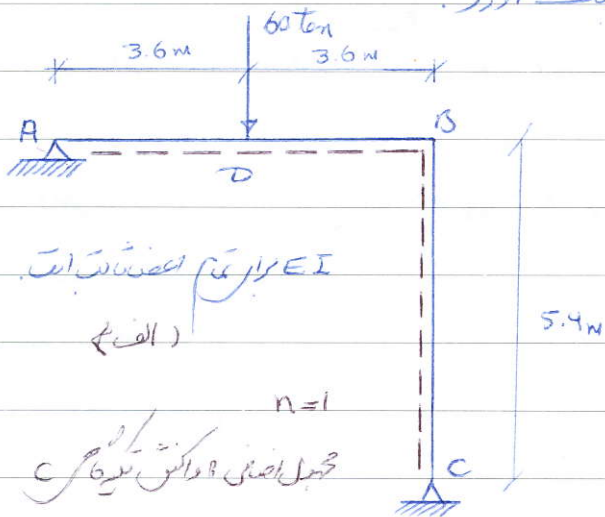 بدست آورید.
60 ton
3.6 m 3.6 m
A B
D
EI برای تمام اعضا ثابت است.
(الف)
5.4 m
n=1
مجهول اضافی واکنش تکیه‌گاهی C
C